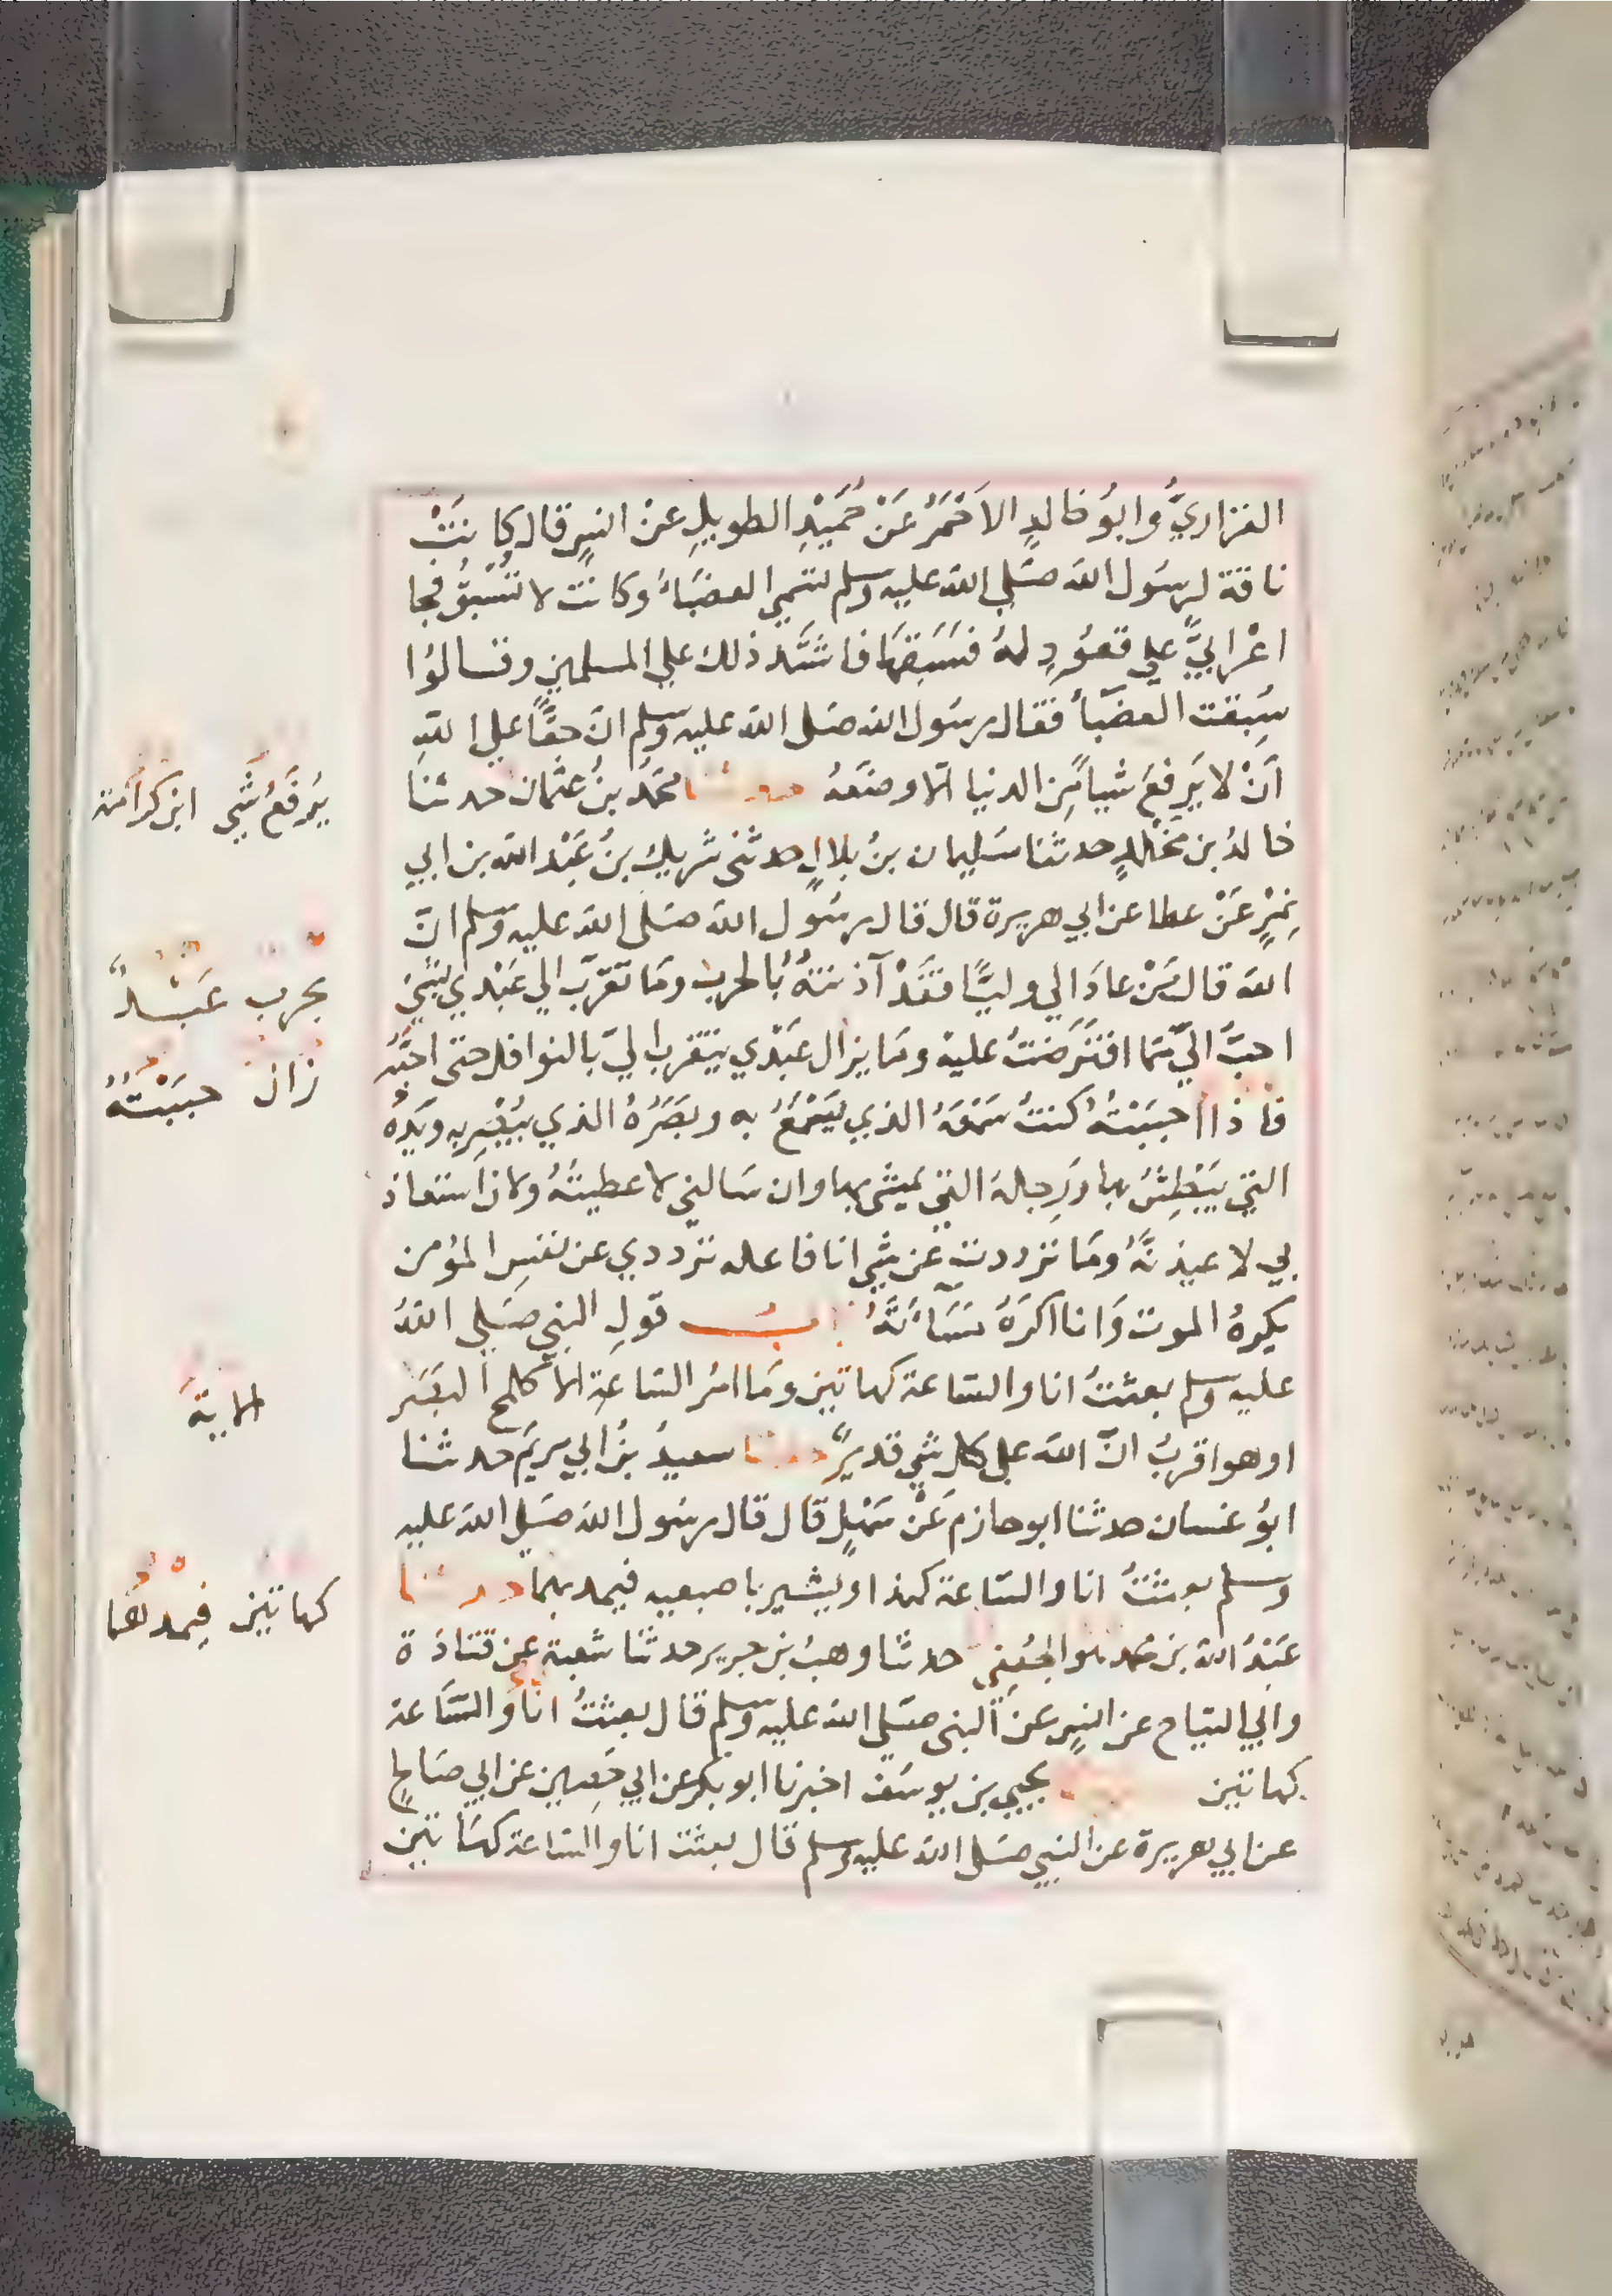 الفزاريُّ وابوُ خالدٍ الاَحْمَرُ عَنْ حُمَيْدٍ الطويلِ عنْ انسٍ قال كانَتْ
ناقة لرسُول الله صَلى الله عليه وسلم تسَمي العضبَاءُ وكانت لا تُسْبَقُ فجا
اعْرابيٌّ علي قعوُدٍ لهُ فسَبَقهَا فاشتَد ذلك علي المسلمين وقالوُا
سُبِقت العضبَاُ فقال رسُول الله صَلى الله عليه وسلم انّ حقًّا علي اللهِ
اَنْ لا يَرفعَ شيا مِّن الدنيا الّا وضعَهُ حدثنا محمَد بنُ عثمان حدثنا
خالدُ بن مَخْلدٍ حدثنا سَليمان بنُ بلالٍ حدثنى شريك بنُ عَبْد الله بن ابي
نمِرٍ عَنْ عطا عن ابي هريرة قال قال رسُول الله صَلى الله عليه وسلم انّ
الله قال مَنْ عادَا لي وليًّا فقَدْ آذنتهُ بالحرب ومَا تقرّبَ الي عَبْدي بشيٍ
احبَّ اليّ ممّا افترَضتُ عليه ومَا يزال عَبْدي يتقرب اليّ بالنوافل حتى احبَّه
فاذا احببْتُهُ كنتُ سَمْعَهُ الذي يَسْمَعُ به وبَصَرُهُ الذي يُبْصِر به ويَدهُ
التي يَبْطِشُ بها وَرِجلهُ التي يمشى بها وان سَالني لاعطينّهُ ولان استعاذ
بي لاعيذنَّهُ ومَا ترددت عَن شي انا فاعله ترددي عن نفسِ المؤمن
يكرهُ الموت وَانا اكرَهُ مَسَاءَتَهُ بابُ قولِ النبي صَلي اللهُ
عليه وسلم بعثتُ انا والسّاعة كهاتين ومَا امرُ السّاعةِ الّا كلمح البصَر
او هو اقربُ انّ الله على كل شي قديرٌ حدثنا سعيدُ بنُ ابي مريَم حدثنا
ابوُ غسان حدثنا ابو حازم عَنْ سَهْلٍ قال قال رسُول الله صَلى الله عليه
وسلم بعثتُ انا والسّاعة كهذا ويشير باصبعيه فيمد بهما حدثنا
عَبْدُ الله بن محمد هو الجُعفِى حدثنا وهبُ بن جرير حدثنا شعبة عن قتادَة
وابي التياح عن انسٍ عن النبى صَلى الله عليه وسلم قال بعثتُ انا والسَّاعة
كهاتين يحيي بن يوسَف اخبرنا ابو بكر عن ابي حَصِين عن ابي صَالحٍ
عن ابي هريرة عن النبي صَلى الله عليه وسلم قال بعثت انا والسَّاعة كهَاتين
يُرفَعَ شَي ابن كرامَة
بحرب عَبْدٌ
زال حبَبْتهُ
الاية
كهاتين فيمدهما